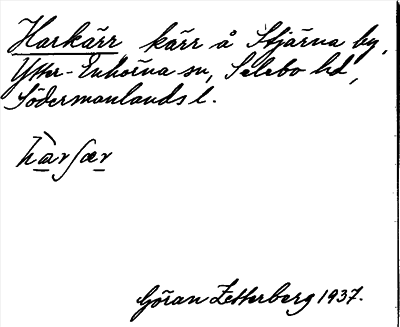 Harkärr kärr å Stjärna by,
Ytter-Enhörna sn, Selebo hd,
Södermanlands l.
hàrʃær
Göran Zetterberg 1937.